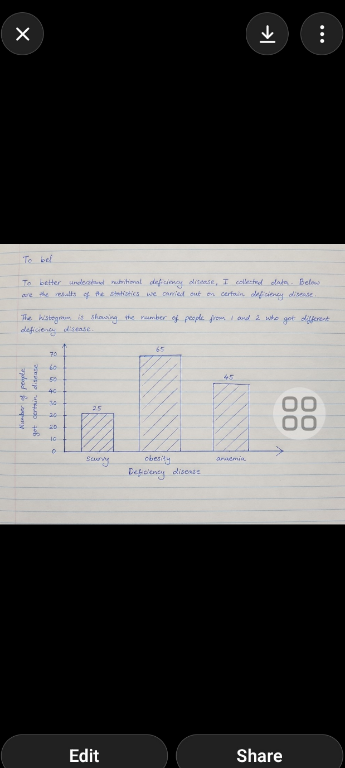 To bel
To better understand nutritional deficiency disease, I collected data. Below
are the results of the statistics we carried out on certain deficiency disease.
The histogram is showing the number of people from 1 and 2 who got different
deficiency disease.
Number of people
got certain disease
70
60
50
40
30
20
10
0
25
65
45
scurvy obesity anaemia
Deficiency disease
Edit Share